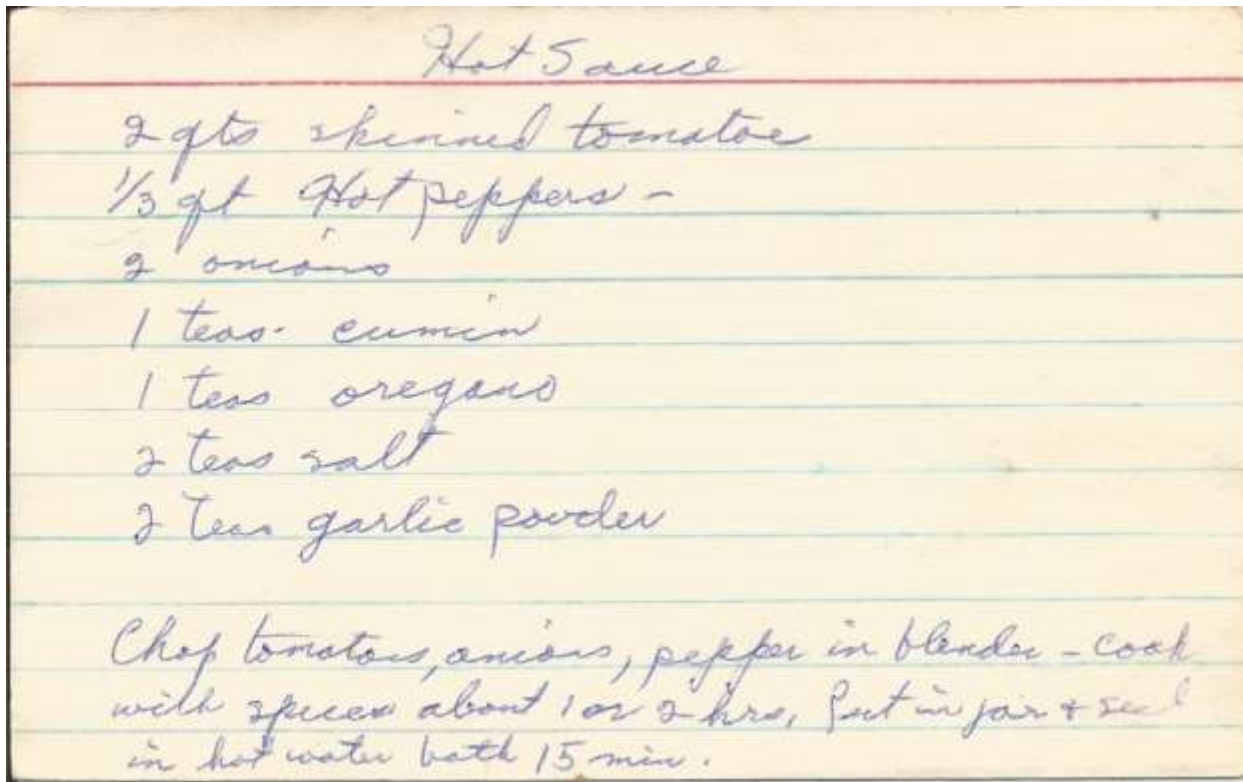 Hot Sauce
2 qts skinned tomatoe
1/3 qt Hot peppers -
2 onions
1 teas. cumin
1 teas oregano
2 teas salt
2 teas garlic powder
Chop tomatoes, onions, pepper in blender - cook
with spices about 1 or 2 hrs, Put in jar + seal
in hot water bath 15 min.